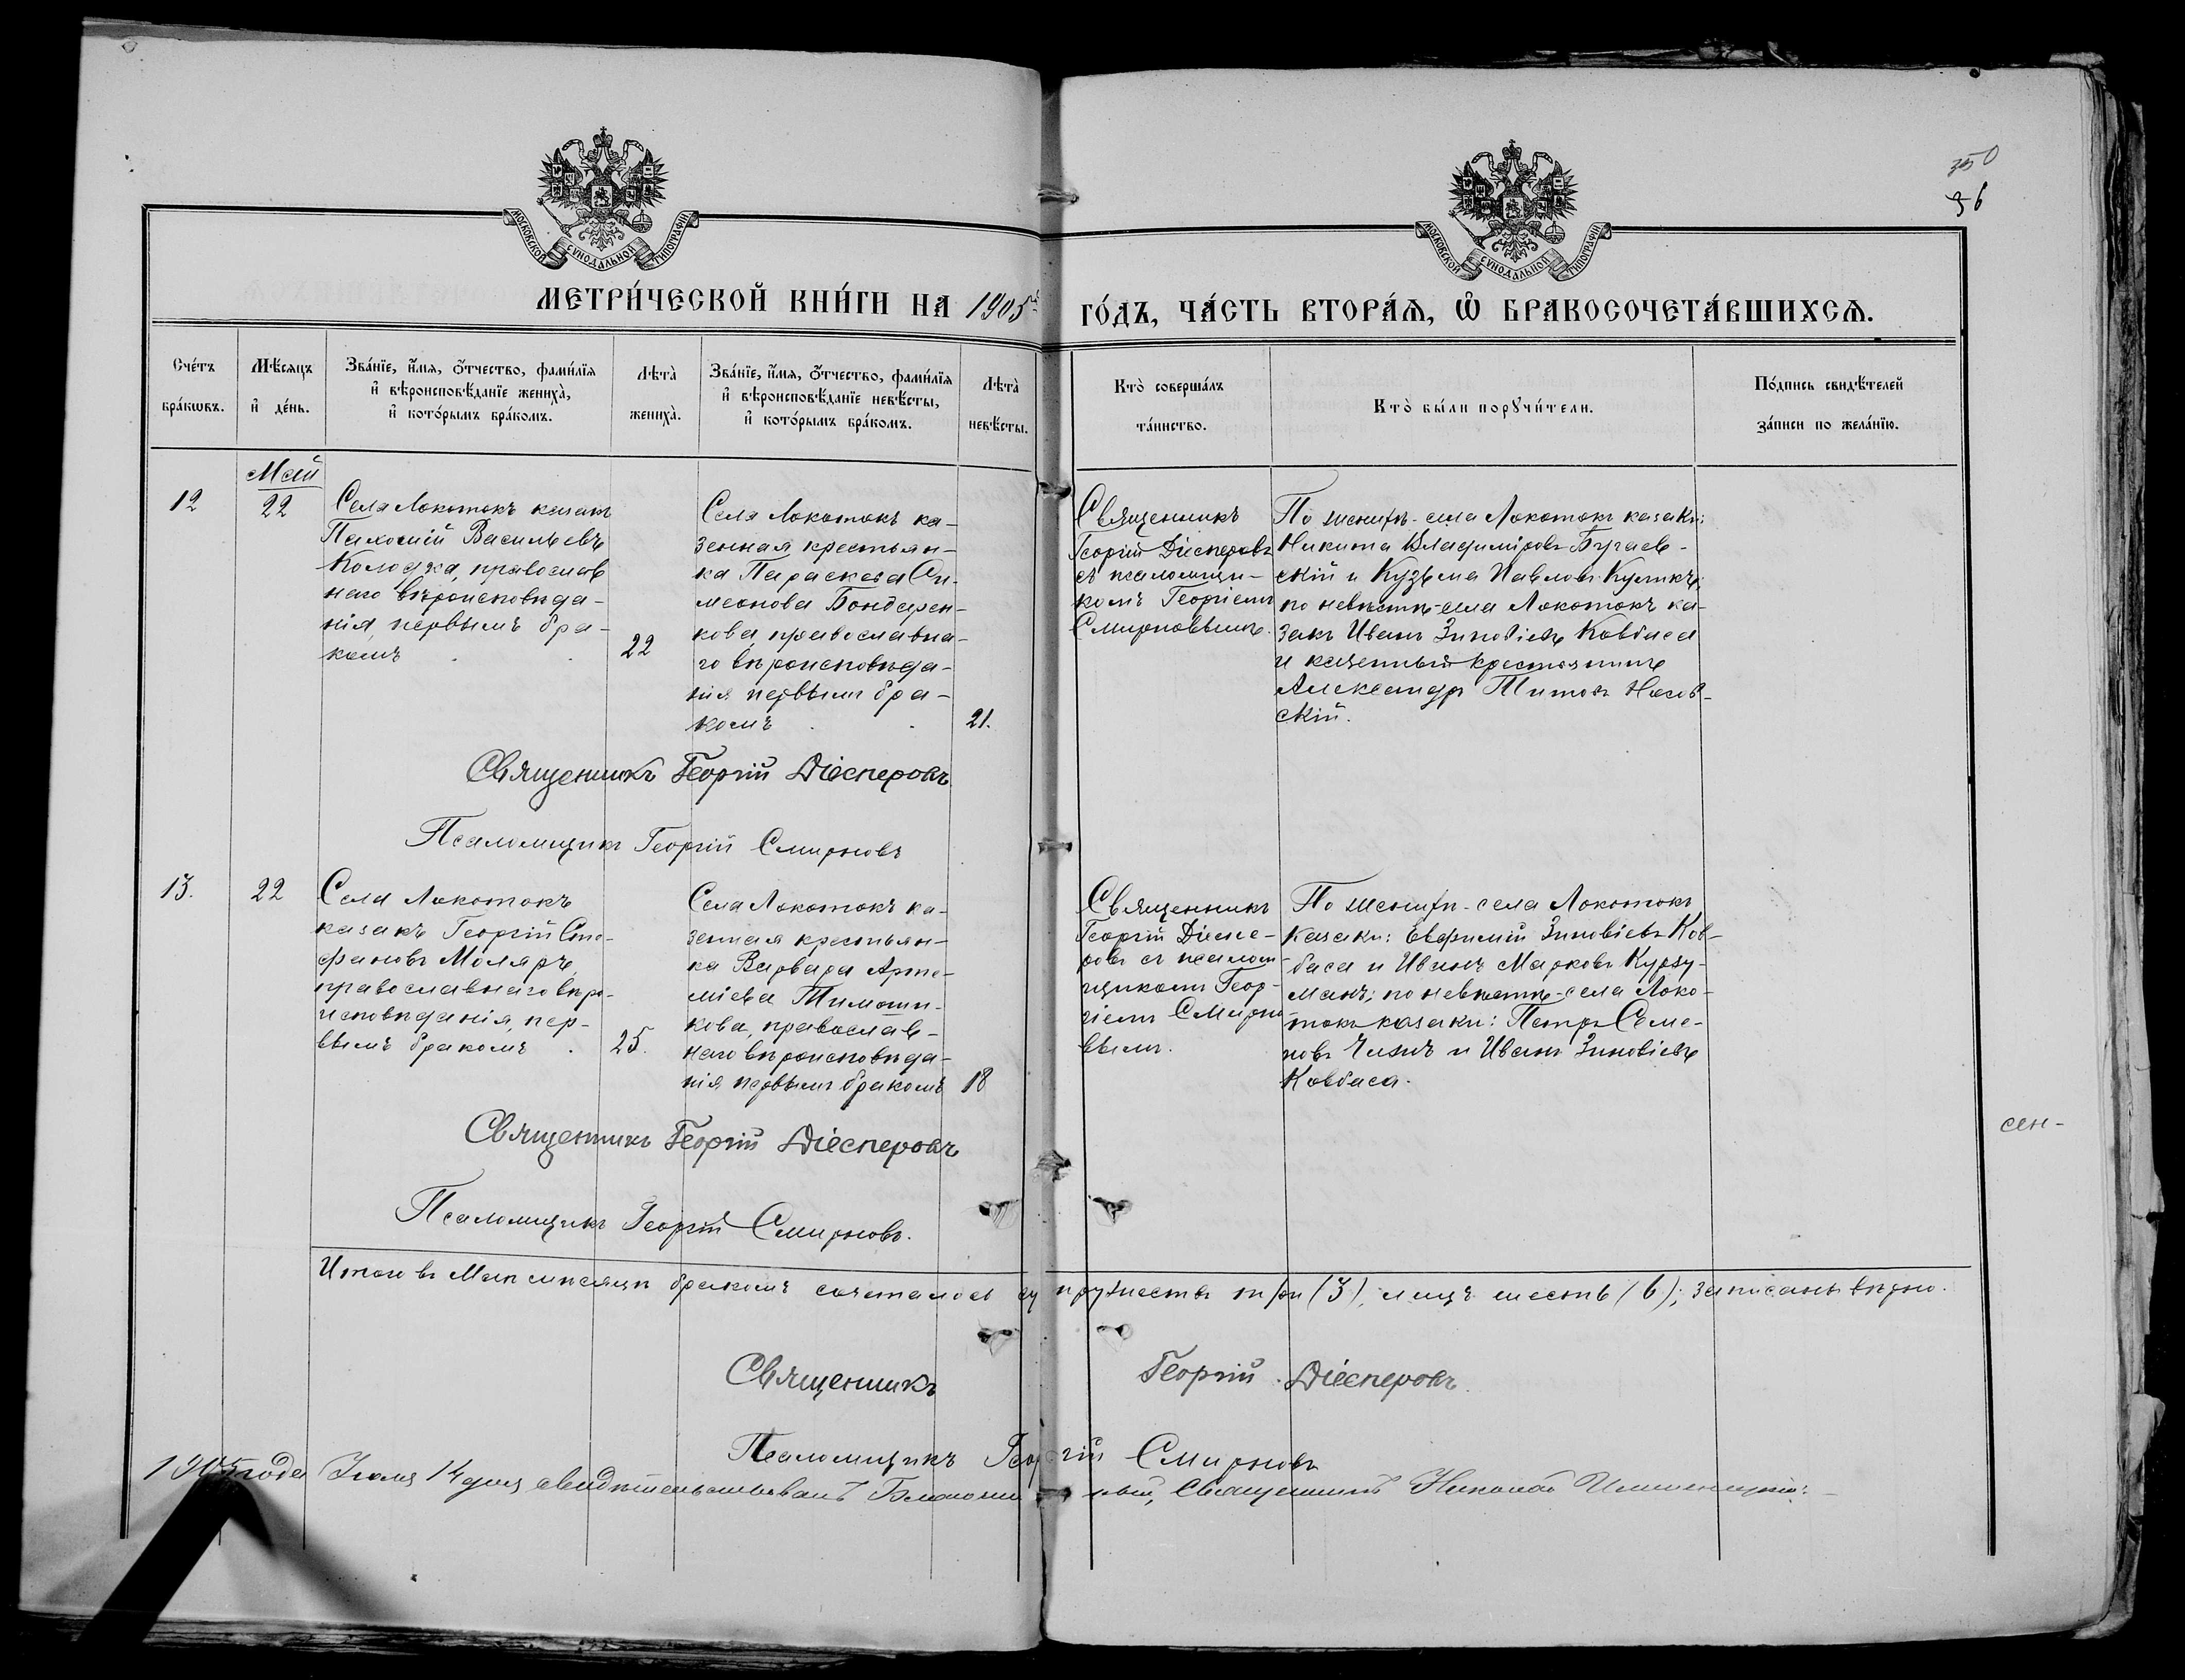 350
36
МОСКОВСКОЙ СУНОДАЛЬНОЙ ТИПОГРАФІИ
МОСКОВСКОЙ СУНОДАЛЬНОЙ ТИПОГРАФІИ
МЕТРИ́ЧЕСКОЙ КНИ́ГИ НА 1905й ГО́ДЪ, ЧА́СТЬ ВТОРА́Ѧ, Ѡ҆ БРАКОСОЧЕТА́ВШИХСѦ.
Счéтъ
брáкѡвъ.
Мѣ́сяцъ
и҆ дéнь.
Звáнїе, и҆́мя, Ѻ҆́тчество, фами́лїя
и҆ вѣроисповѣ́данїе женихà,
и҆ котóрымъ брáкомъ.
Лѣтà
женихà.
Звáнїе, и҆́мя, Ѻ҆́тчество, фами́лїя
и҆ вѣроисповѣ́данїе невѣ́сты,
и҆ котóрымъ брáкомъ.
Лѣтà
невѣ́сты.
Ктò совершáлъ
тáинство.
Ктò бы́ли порꙋчи́тели.
Пóдпись свидѣ́телей
зáписи по желáнїю.
12
Май
22
Села Локотокъ казакъ
Пахомій Васильевъ
Колодка, православ
наго вѣроисповѣда-
нія, первымъ бра-
комъ
22
Села Локотокъ ка-
зенная крестьян-
ка Параскева Си-
меонова Бондарен-
кова православна-
го вѣроисповѣда-
нія первымъ бра-
комъ
21.
Священникъ
Георгій Діесперовъ
съ псаломщи-
комъ Георгіемъ
Смирновымъ.
По женихѣ-села Локотокъ казаки:
Никита Владиміровъ Бугаев-
скій и Кузьма Павловъ Куликъ;
по невѣстѣ-села Локотокъ ка-
закъ Иванъ Зиновіевъ Ковбаса
и казенный крестьянинъ
Александръ Титовъ Носов-
скій.
Священникъ Георгій Діесперовъ
Псаломщикъ Георгій Смирновъ
13.
22
Села Локотокъ
казакъ Георгій Сте-
фановъ Моляръ,
православнаго вѣро-
исповѣданія, пер-
вымъ бракомъ
25.
Села Локотокъ ка-
зенная крестьян-
ка Варвара Арте-
міева Тимоши-
кова, православ-
наго вѣроисповѣда-
нія первымъ бракомъ
18
Священникъ
Георгій Діеспе-
ровъ съ псалом-
щикомъ Геор-
гіемъ Смирно-
вымъ.
По женихѣ-села Локотокъ
казаки: Евфимій Зиновіевъ Ков-
баса и Иванъ Марковъ Курзу-
манъ; по невѣстѣ-села Локо-
токъ казаки: Петръ Семе-
новъ Чижъ и Иванъ Зиновіевъ
Ковбаса.
Священникъ Георгій Діесперовъ
сен-
Псаломщикъ Георгій Смирновъ.
Итого въ Маѣ мѣсяцѣ бракомъ сочеталось супружествъ три (3), лицъ шесть (6); записаны вѣрно.
Священникъ Георгій Діесперовъ.
Псаломщикъ Георгій Смирновъ
1905 года Іюля 14 дня свидѣтельствовалъ Священникъ Николай